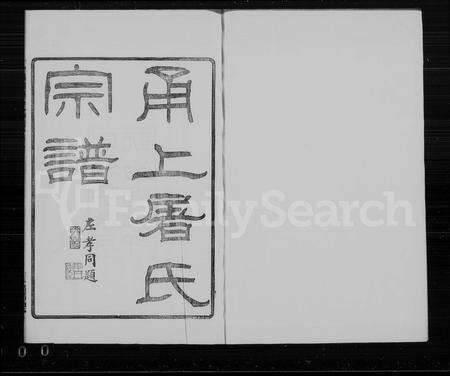 甬上屠氏
宗譜
屠孝同題
FamilySearch
0 0